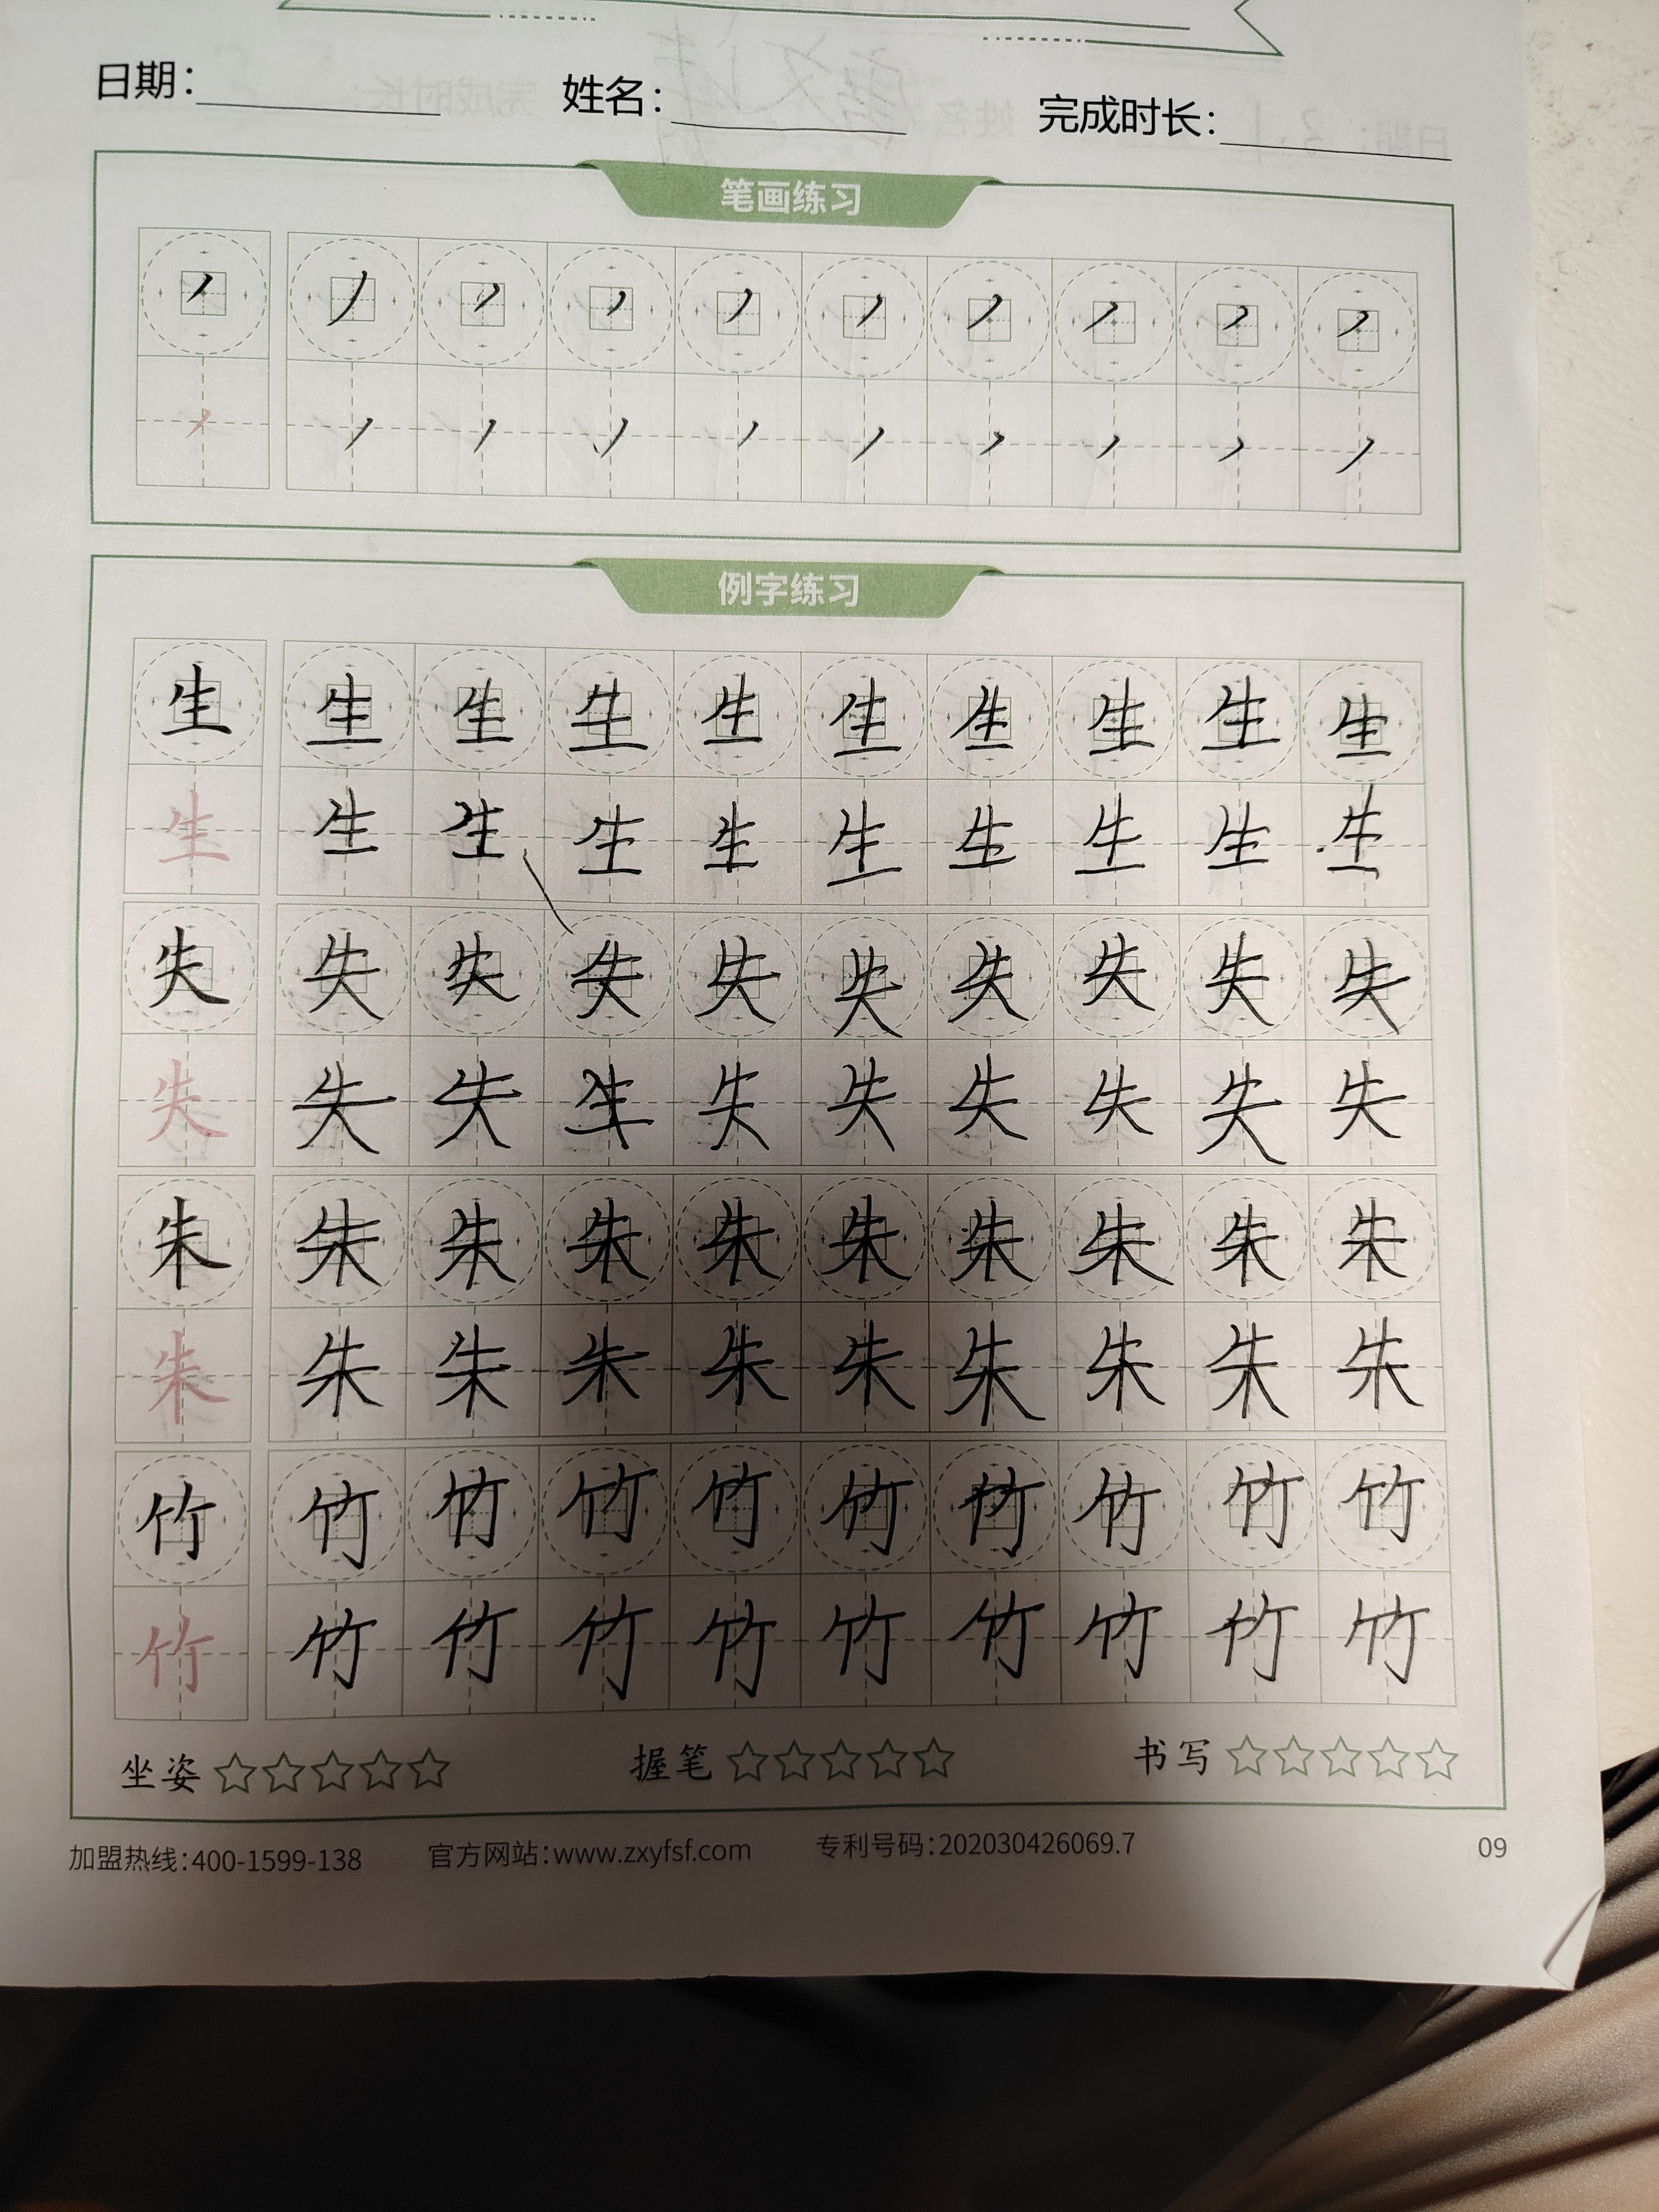 日期：
姓名：
完成时长：
笔画练习
例字练习
生 生 生 生 生 生 生 生 生 生
生 生 生 生 生 生 生 生 生 生
失 失 失 失 失 失 失 失 失 失
失 失 失 生 失 失 失 失 失 失
朱 朱 朱 朱 朱 朱 朱 朱 朱 朱
朱 朱 朱 朱 朱 朱 朱 朱 朱 朱
竹 竹 竹 竹 竹 竹 竹 竹 竹 竹
竹 竹 竹 竹 竹 竹 竹 竹 竹 竹
坐姿 握笔 书写
加盟热线：400-1599-138 官方网站：www.zxyfsf.com 专利号码：202030426069.7 09